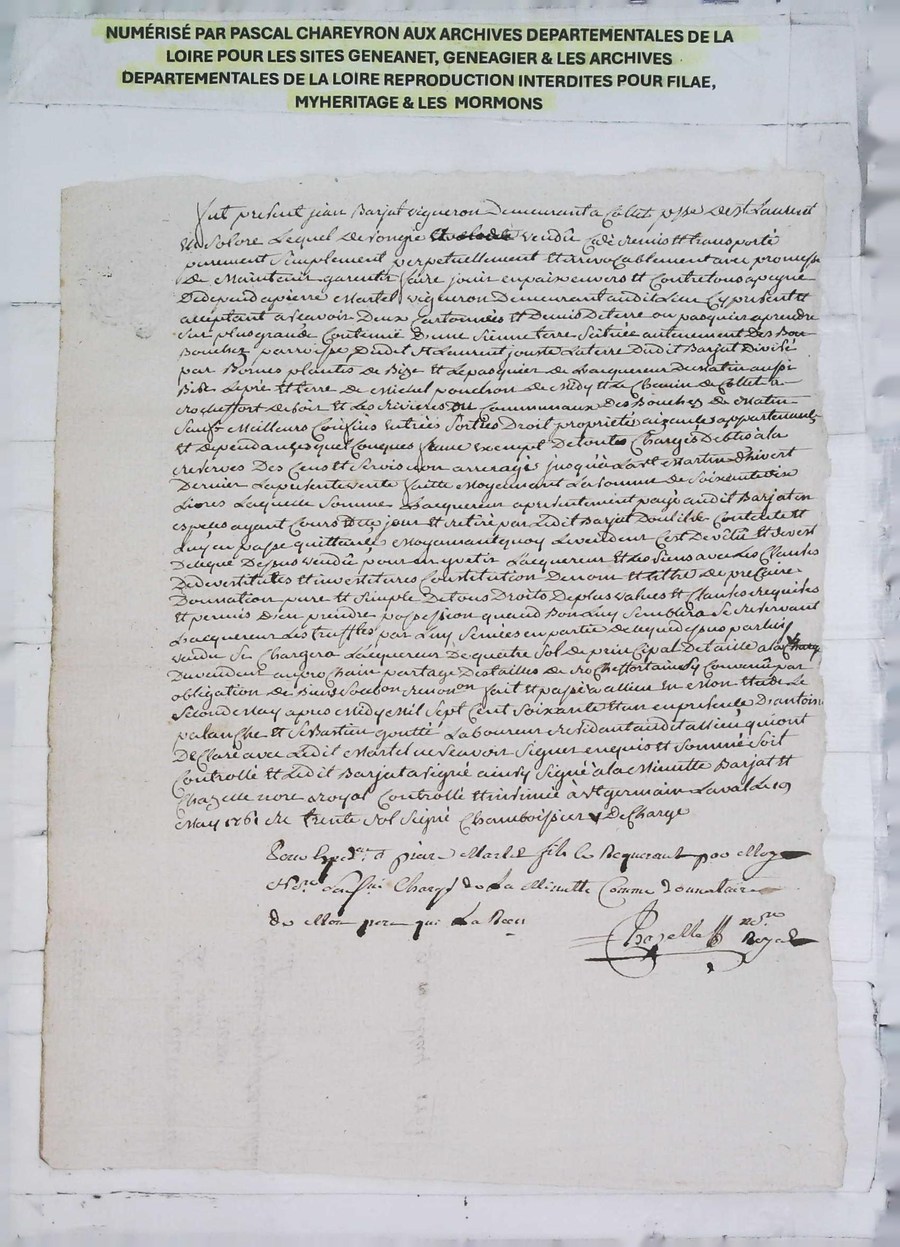 NUMÉRISÉ PAR PASCAL CHAREYRON AUX ARCHIVES DEPARTEMENTALES DE LA
LOIRE POUR LES SITES GENEANET, GENEAGIER & LES ARCHIVES
DEPARTEMENTALES DE LA LOIRE REPRODUCTION INTERDITES POUR FILAE,
MYHERITAGE & LES MORMONS
fut present jean Barjat vigneron Demeurant a Collet psse De st Laurent
Lequel De son gré vendu cede remis et transporté
purement simplement perpetuellement et irrevocablement avec promesse
De Maintenir garentir faire jouir en paix envers et Contre tous a peyne
De depend a pierre Martel vigneron Demeurant audit Lieu Cy present et
acceptant a seavoir Deux Cartonnées et Demis De terre ou pasquier a prendre
sur plus grande Contenue D'une sienne terre scituée au tenement Des
Bouchez parroisse Dudit St Laurent jouste La terre Dudit Barjat Divisé
par Bornes plantés de Bize et Le pasquier de L'acquereur De Matin aussi
Bize Le pré et terre de Michel ponchon De Midy et Le Chemin de Collet a
Rocheffort De soir et Les Rivieres ou Communaux Des Bouchez De Matin
sauf Meilleurs Confins Entrées sorties Droit proprieté aizances appartenances
et Dependances quelConques franc exempt De toutes Charges Debtes a la
reserves Des Cens et servis non arreragé jusqu'à La St Martin D'hivert
Dernier La presente vente faitte Moyennant La somme de soixante
Livres Laquelle somme L'acquereur a presentement payé audit Barjat en
especes ayant Cours De ce jour et retiré par Ledit Barjat Contente et
L'uy en passe quittance Moyennant quoy Levendeur C'est Devêtu et Devest
De ce que Dessus vendu pour en vestir L'acquereur et Les siens avec Les Clauses
De devestitures et investitures Constitution De nom et tittre de precaire
Donnation pure et simple De tous Droits De plus values et Clauses requises
et permis D'en prendre possession quand Bon Luy semblera se reservant
L'acquereur Les truffles par Luy semées en partie De ce que Dessus par Luy
vendu se Chargera L'acquereur De quatre sol De principal De taille a la Charge
Du vendeur au prochain partage Des tailles de Rocheffort ainsy Convenu par
obligation de Biens soubon renon.on fait et passé a allieu En Mon etude Le
second May apres Midy Mil sept Cent soixante et un en presence D'antoine
palanche et sebastien goutté Laboureur residant audit allieu qui ont
De Claré avec Ledit Martel ne seavoir signer enquis et sommé soit
Controllé et Ledit Barjat a signé ainsy signé a la Minutte Barjat et
Chazelle nore royal Controllé et insinué a st germain Laval Le 19
May 1761 re trente sol signé DeCharge
pierre Martel fils Le Requerant par Moy
Nore Chargé de La Minutte Comme
de Mon pere qui La Receu
Chazelle nore
Royal